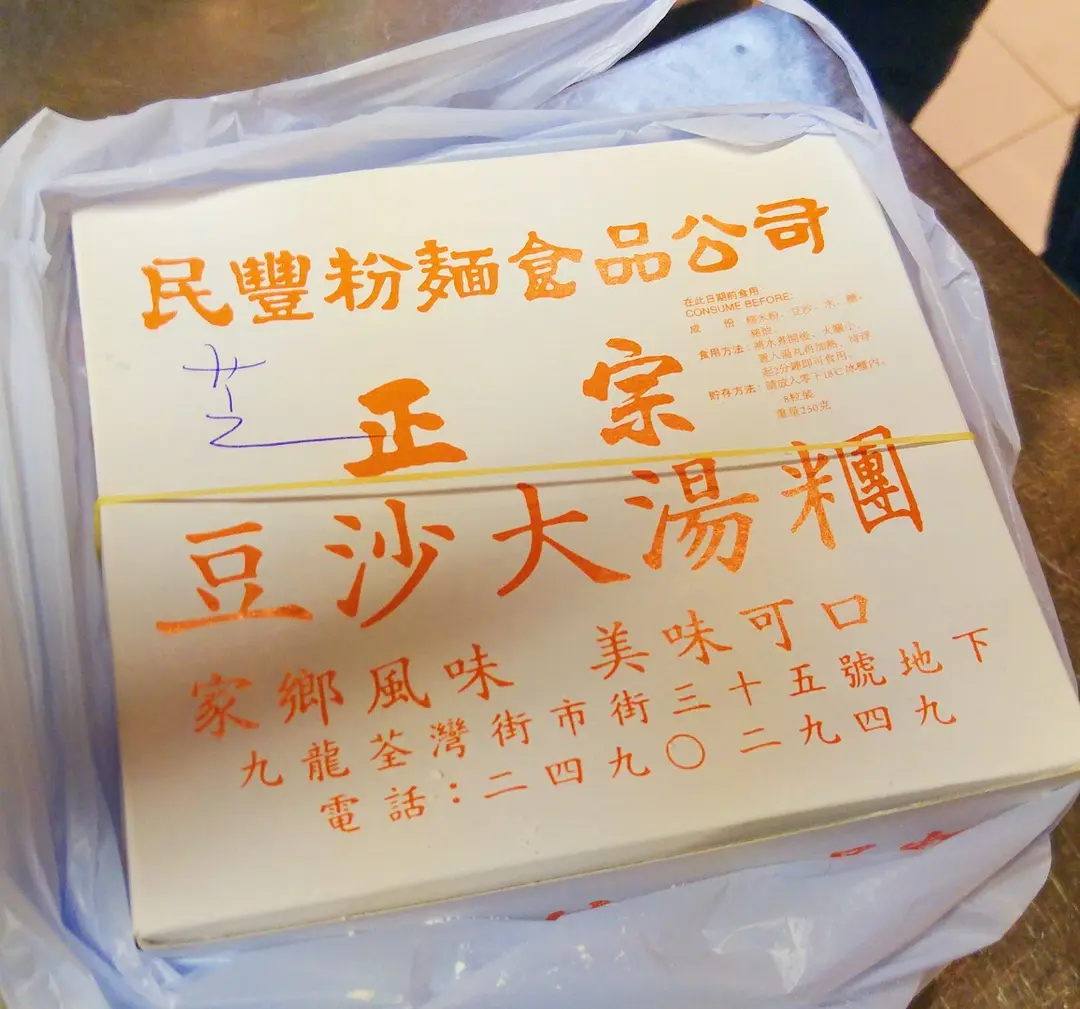 民豐粉麵食品公司
在此日期前食用
CONSUME BEFORE:
成 份 糯米粉、豆沙、水、糖、
豬油。
食用方法: 滴水煮開後、火驟小、
置入湯丸再加熱、待浮
起2分鐘即可食用。
貯存方法: 請放入零下18℃冰櫃內。
8粒裝
重量250克
芝
正 宗
豆沙大湯糰
家鄉風味 美味可口
九龍荃灣街市街三十五號地下
電話:二四九〇二九四九